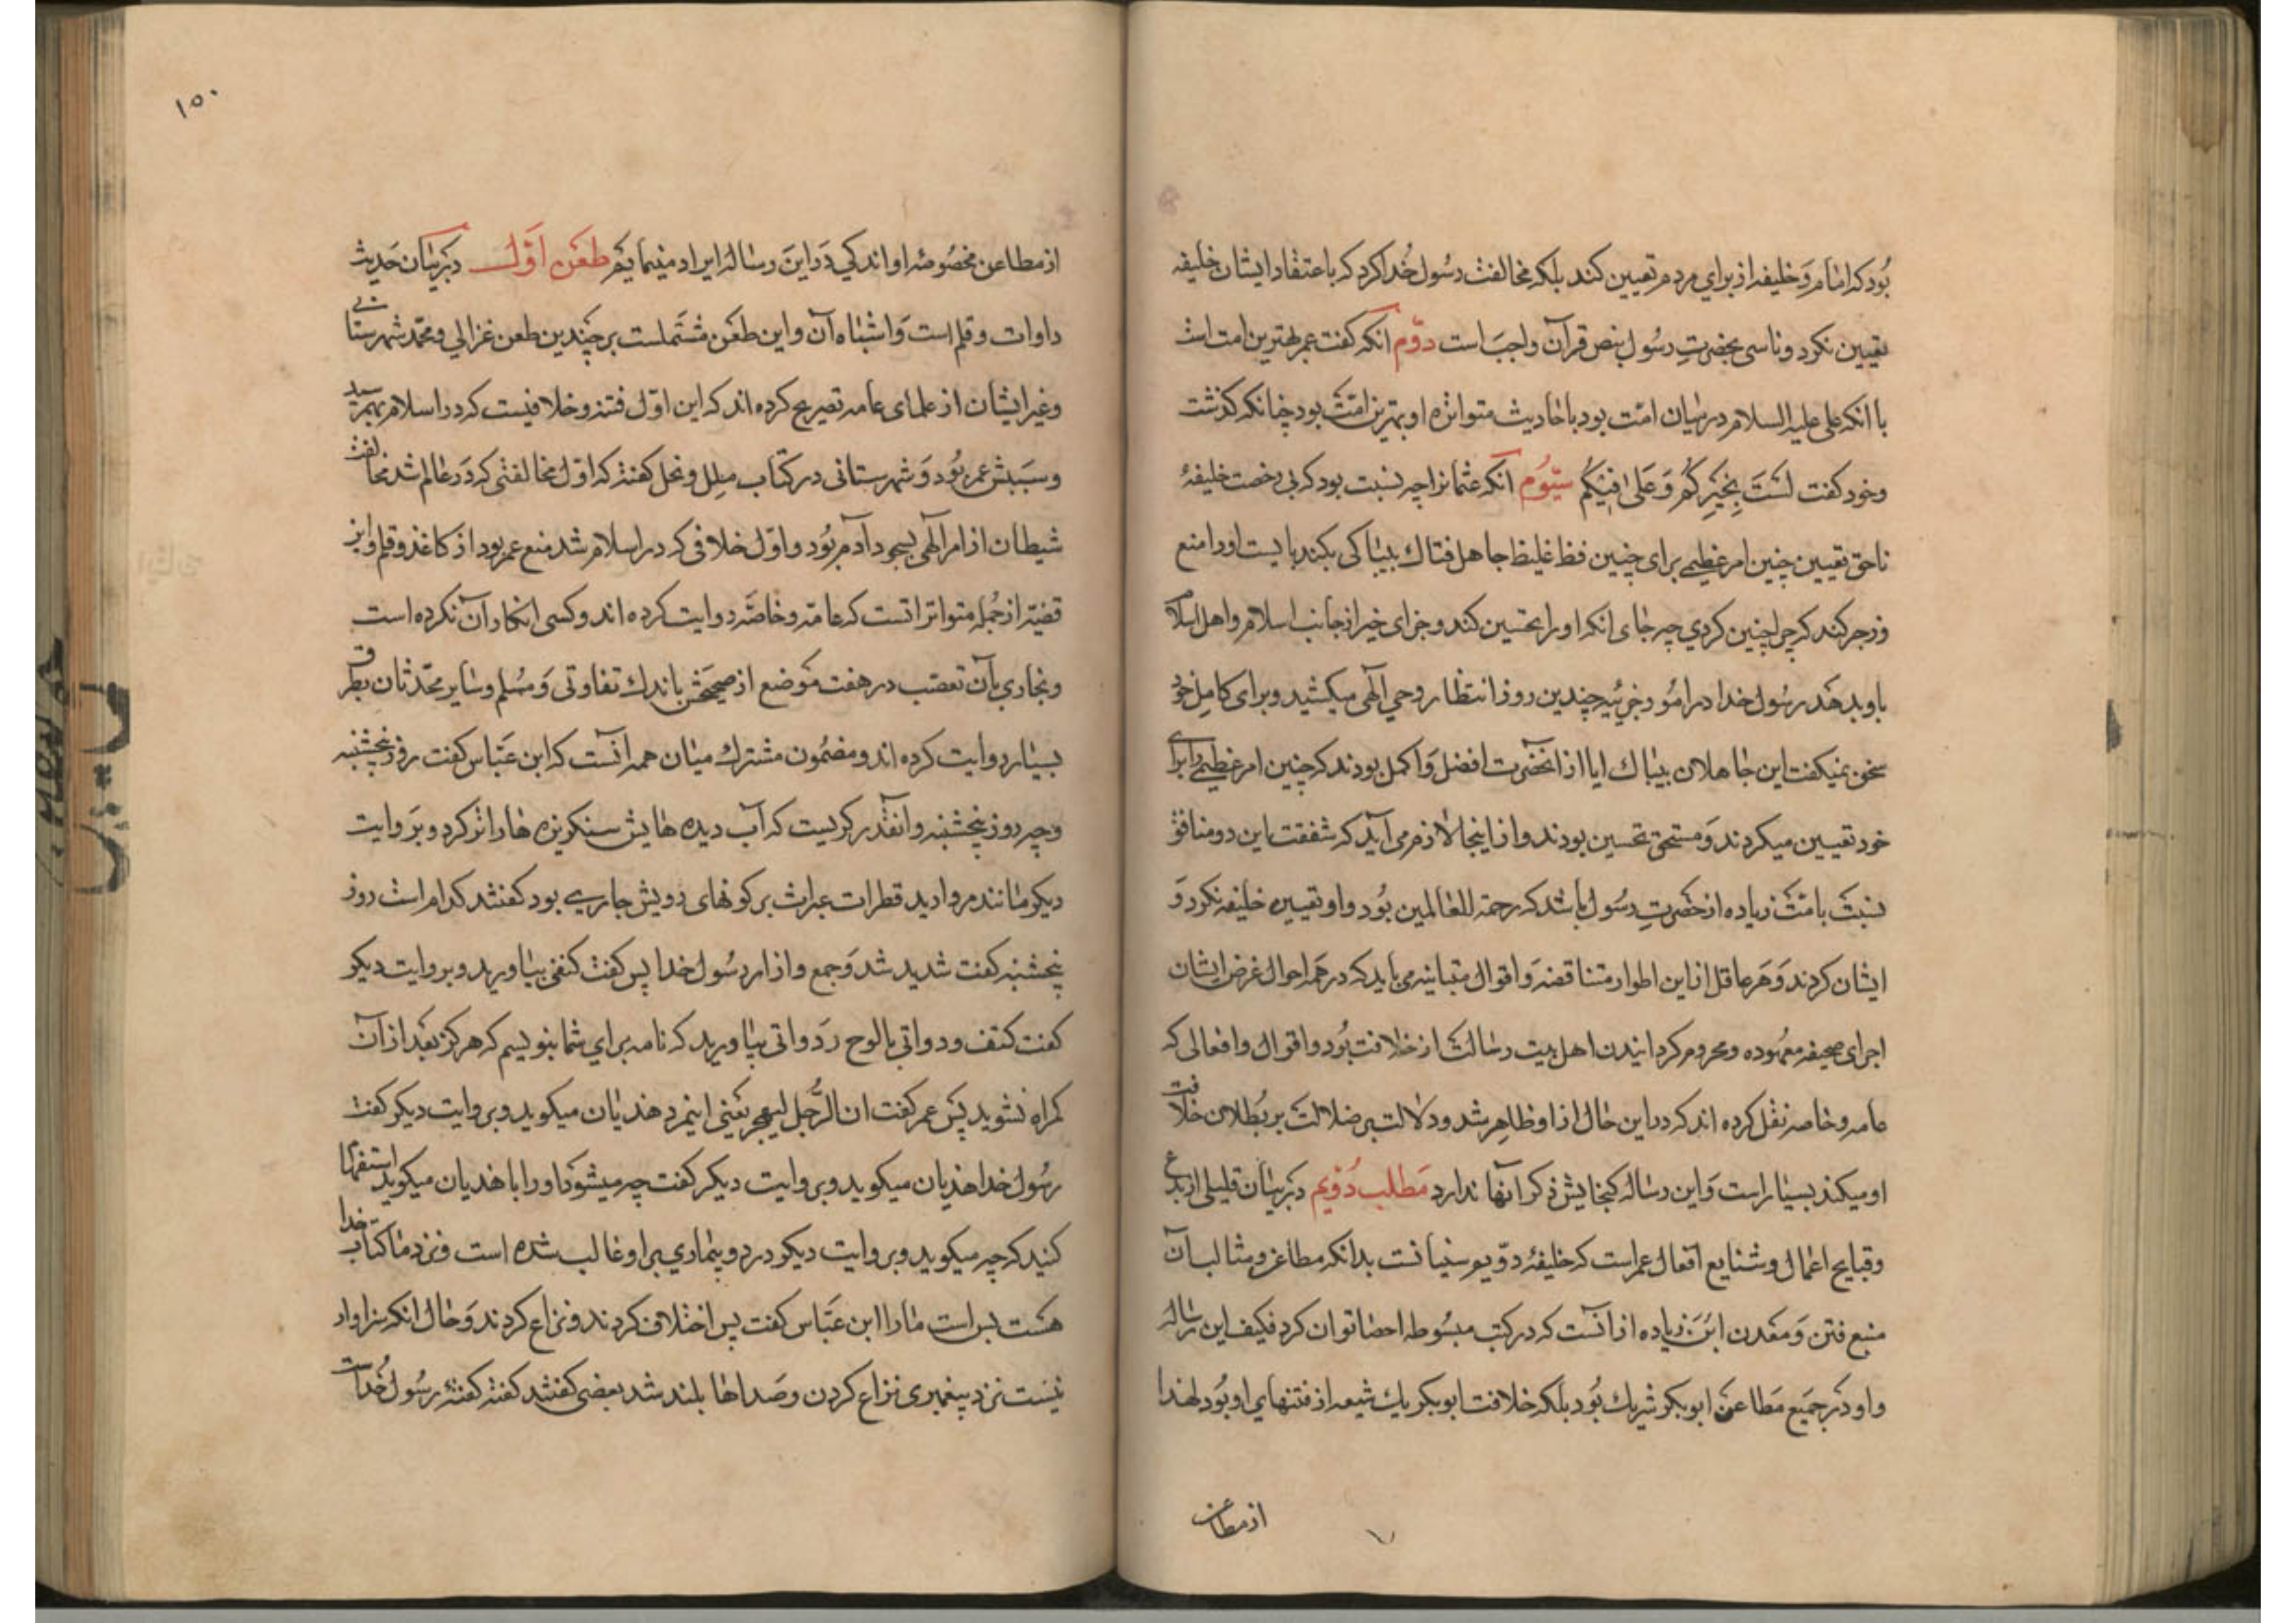 بود که امام و خلیفه از برای مردم تعیین کند بلکه مخالفت رسول خدا کرد که باعتقاد ایشان خلیفه
تعیین نکرد و تاسی بحضرت رسول بنص قرآن واجب است دوّم انکه کفت عمر بهترین امت است
با انکه علی علیه السلام در میان امت بود باحادیث متواتره او بهترین امّت بود چنانکه کذشت
و خود کفت لست بخیرکم و علی فیکم سیّوم انکه عثمانرا چه نسبت بود که بی رخصت خلیفهٔ
ناحق تعیین چنین امر عظیمی برای چنین فظ غلیظ جاهل فتاك بیباکی بکند بایست او را منع
و زجر کند که چرا چنین کردی چه جای انکه او را تحسین کند و جزای خیر از جانب اسلام و اهل اسلام
باو بدهد رسول خدا در امور جزئیه چندین روز انتظار وحی الهی میکشید و برای کامل خود
سخن نمیکفت این جاهلان بیباك ایا از انحضرت افضل و اکمل بودند که چنین امر عظیمی را برای
خود تعیین میکردند و مستحق تحسین بودند و از اینجا لازم می آید که شفقت این دو منافق
نسبت بامّت زیاده از حضرت رسول باشد که رحمة للعالمین بود و او تعیین خلیفه نکرد و
ایشان کردند و هر عاقل از این اطوار متناقضه و اقوال متباینه می یابد که در همه احوال غرض ایشان
اجرای صحیفه معهوده و محروم کردانیدن اهل بیت رسالت از خلافت بود و اقوال و افعالی که
عامه و خاصه نقل کرده اند که در این حال از او ظاهر شد و دلالت بر ضلالت بر بطلان خلافت
او میکند بسیار است و این رساله کنجایش ذکر آنها ندارد مطلب دوّیم در بیان قلیلی از بدع
و قبایح اعمال و شنایع افعال عمر است که خلیفهٔ دوّیم سنیانست بدانکه مطاعن و مثالب آن
منبع فتن و معدن زیاده از آنست که در کتب مبسوطه احصا توان کرد فکیف این رساله
و او در جمیع مطاعن ابوبکر شریك بود بلکه خلافت ابوبکر یك شعبه از فتنهای او بود لهذا
از مطاعن
۱۵۰
از مطاعن مخصوصهٔ او اندکی در این رساله ایراد مینمایم طعن اوّل در بیان حدیث
داوات و قلم است و اشتباه آن و این طعن مشتملست بر چندین طعن غزالی و محمّد شهرستانی
و غیر ایشان از علمای عامه تصریح کرده اند که این اوّل فتنه و خلافیست که در اسلام بهمرسید
و سببش عمر بود و شهرستانی در کتاب ملل و نحل کفته که اوّل مخالفتی که در عالم شد مخالفت
شیطان از امر الهی بسجود آدم بود و اوّل خلافی که در اسلام شد منع عمر بود از کاغذ و قلم و این
قضیّه از جمله متواتراتست که عامّه و خاصّه روایت کرده اند و کسی انکار آن نکرده است
و بخاری بآن تعصّب در هفت موضع از صحیحش باندك تفاوتی و مسلم و سایر محدّثان بطرق
بسیار روایت کرده اند و مضمون مشترك میان همه آنست که ابن عبّاس کفت روز پنجشنبه
و چه روز پنجشنبه و انقدر کریست که آب دیده هایش سنکریزه ها را تر کرد و بر وایت
دیکر مانند مروارید قطرات عبرات بر کونهای رویش جاری بود کفتند کدام است روز
پنجشنبه کفت شدید شد وجع و ازار رسول خدا پس کفت کتفی بیاورید و بروایت دیکر
کفت کتف و دواتی یا لوح و دواتی بیاورید که نامه برای شما بنویسم که هرکز بعد از آن
کمراه نشوید پس عمر کفت ان الرّجل لیهجر یعنی اینمرد هذیان میکوید و بروایت دیکر کفت
رسول خدا هذیان میکوید و بروایت دیکر کفت چه میشود او را باهذیان میکوید استفهام
کنید که چه میکوید و بروایت دیکر درد و بیماری بر او غالب شده است و نزد ما کتاب خدا
هست بس است ما را ابن عبّاس کفت پس اختلاف کردند و نزاع کردند و حال انکه سزاوار
نیست نزد پیغمبری نزاع کردن و صداها بلند شد بعضی کفتند کفته کفتهٔ رسول خداست